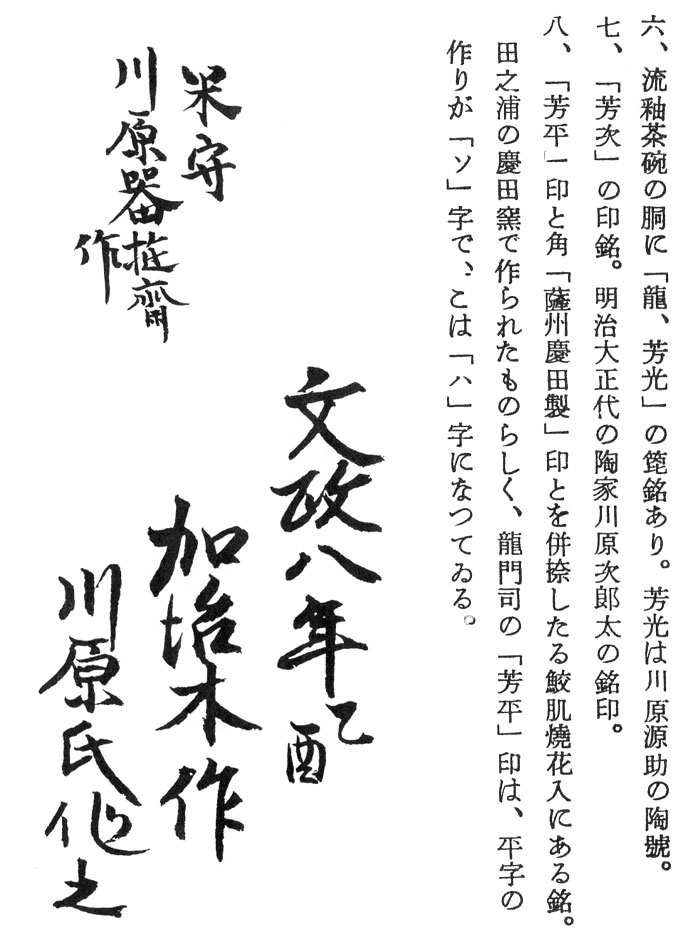 六、流釉茶碗の胴に「龍、芳光」の箆銘あり。芳光は川原源助の陶號。
七、「芳次」の印銘。明治大正代の陶家川原次郎太の銘印。
八、「芳平」印と角「薩州慶田製」印とを併捺したる鮫肌燒花入にある銘。
田之浦の慶田窯で作られたものらしく、龍門司の「芳平」印は、平字の
作りが「ソ」字で、こは「ハ」字になつてゐる。
川原器
齋
作
文政八年乙酉
加治木作
川原氏作之